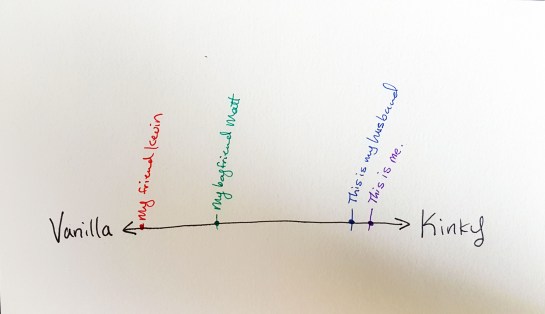 My friend Kevin
My boyfriend Matt
This is my husband
This is me.
Vanilla
Kinky